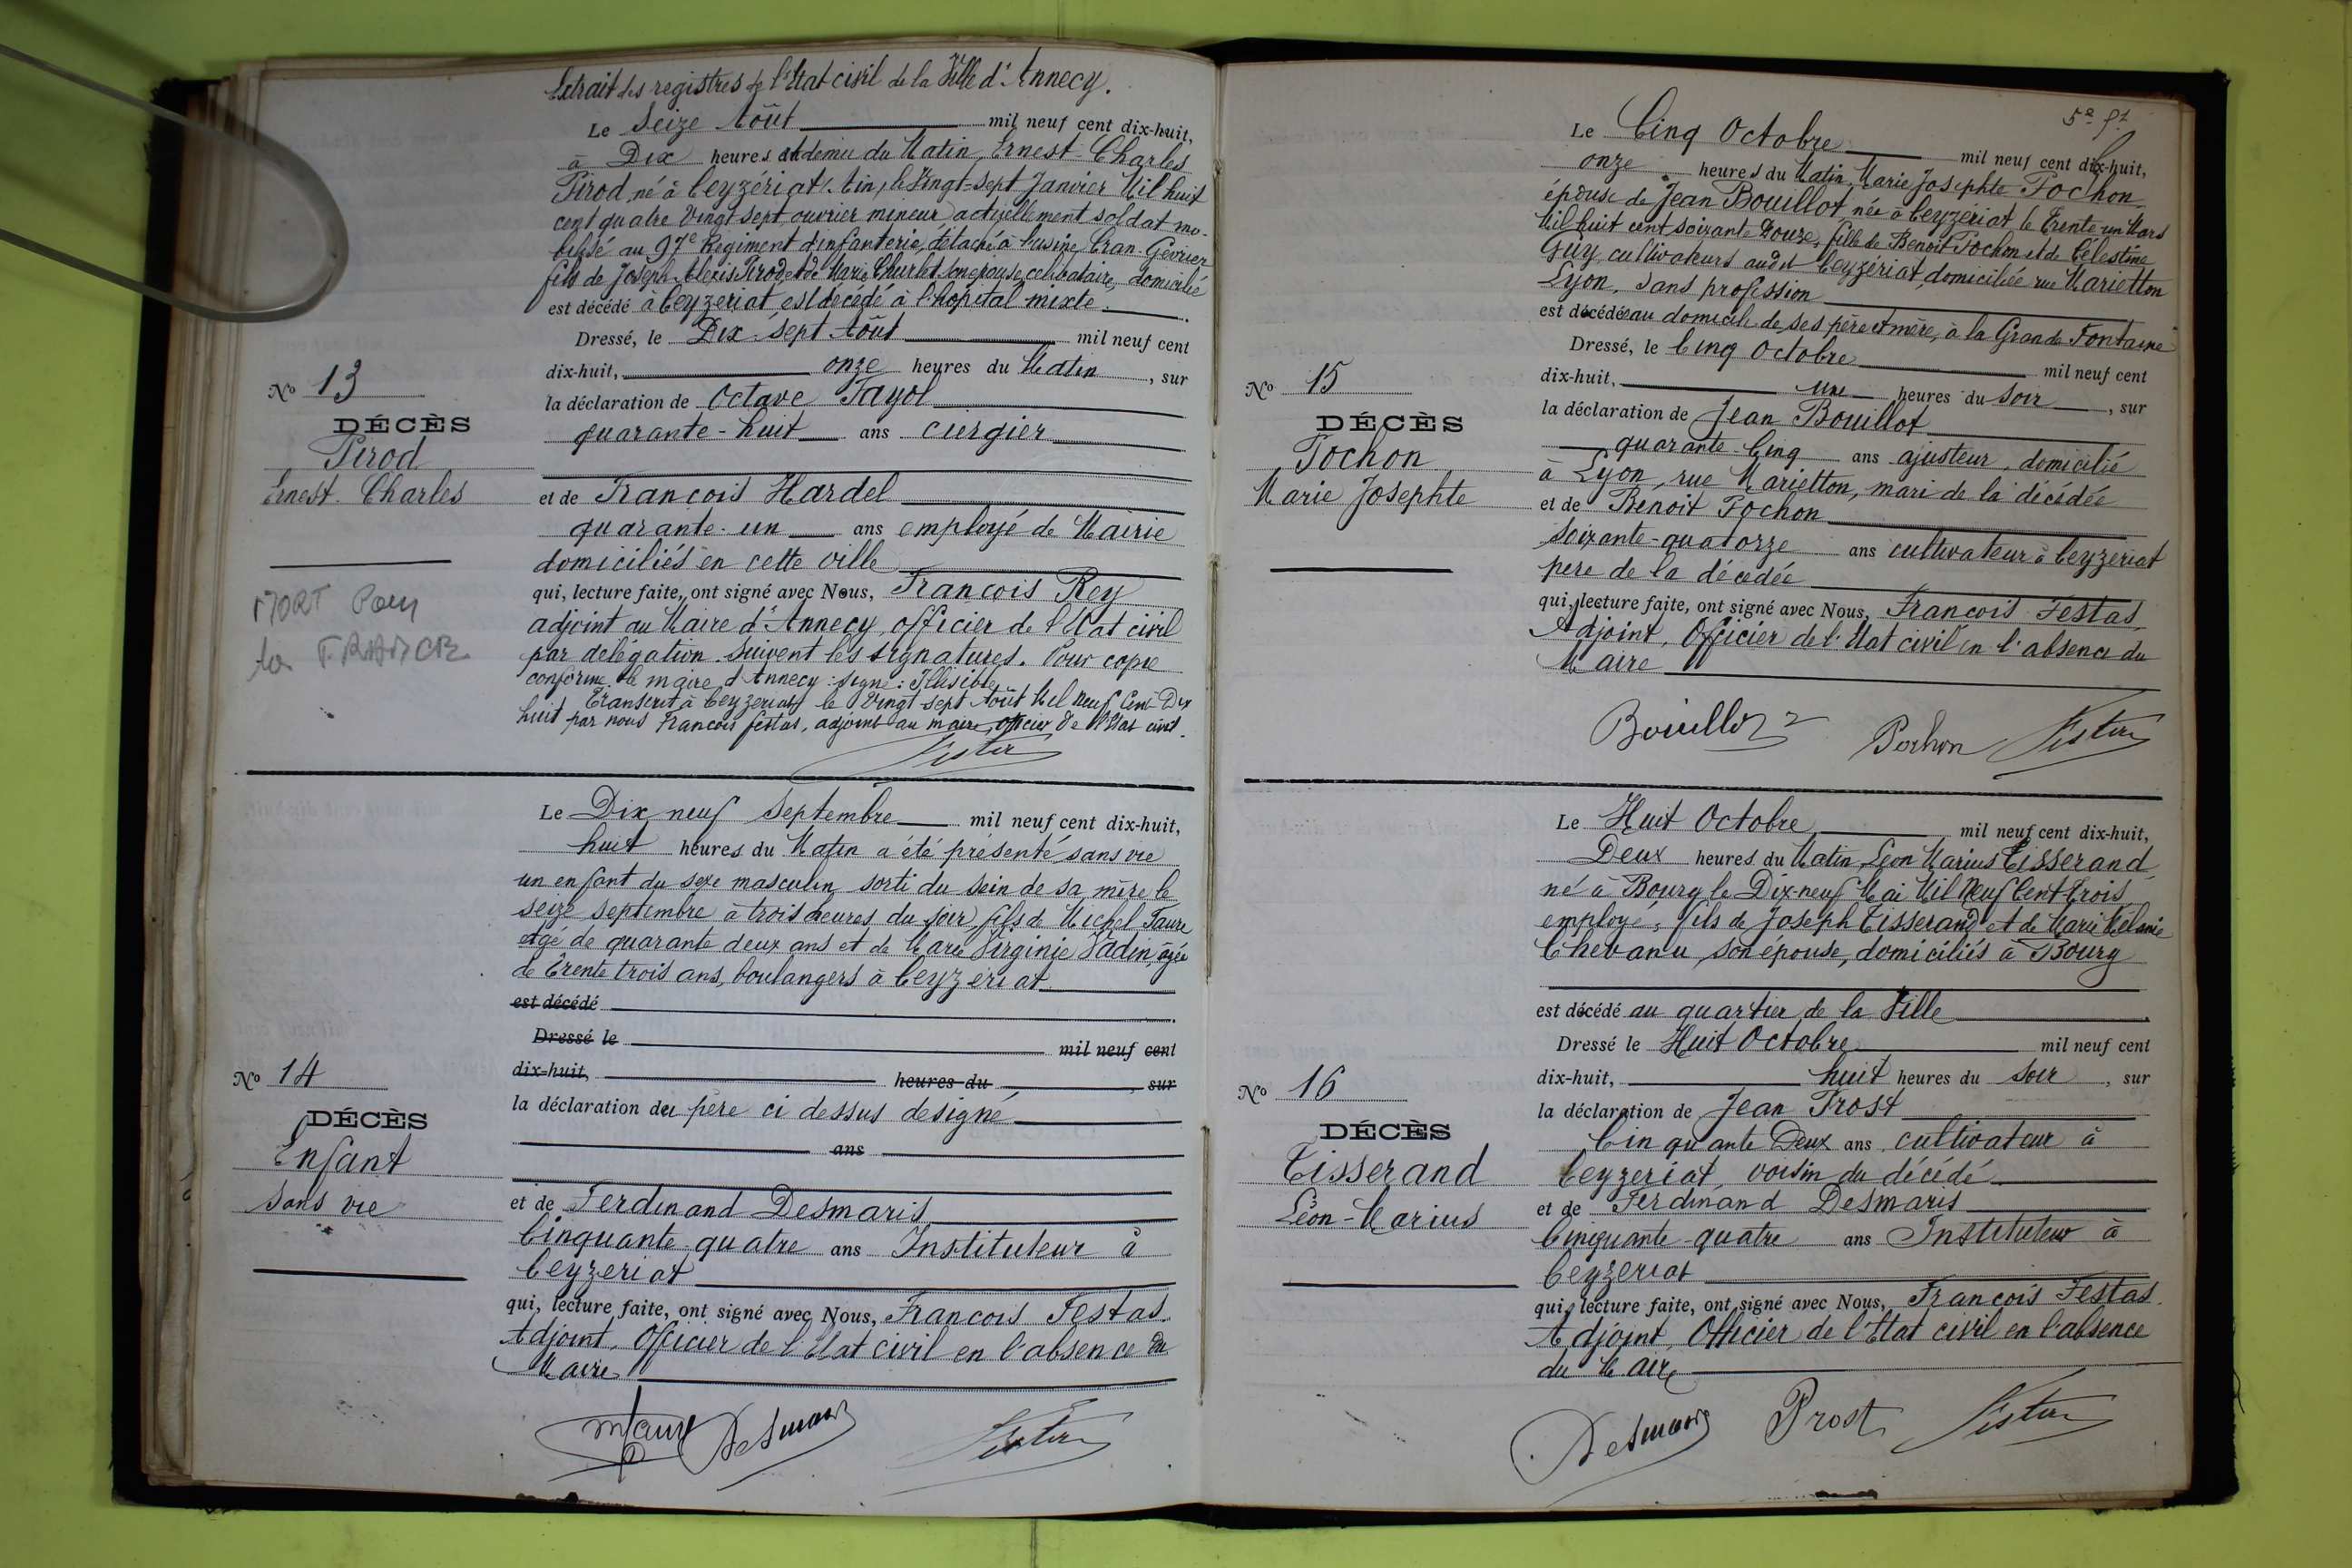 Extrait des registres de l'Etat civil de la Ville d'Annecy.
Le Seize Août mil neuf cent dix-huit,
à Dix heures et demie du Matin, Ernest-Charles
Pirod, né à Ceyzériat (Ain) le Vingt-sept Janvier Mil huit
cent quatre vingt sept, ouvrier mineur actuellement soldat mo-
bilisé au 97e Régiment d'infanterie, détaché à l'usine Cran-Gévrier
fils de Joseph Alexis Pirod et de Marie Churlet son épouse, célibataire, domicilié
est décédé à Ceyzeriat, est décédé à l'hopital mixte.
Dressé, le Dix-Sept Août mil neuf cent
dix-huit, onze heures du Matin, sur
la déclaration de Octave Fayol
quarante-huit ans ciergier
et de François Hardel
quarante-un ans employé de Mairie
domiciliés en cette ville
qui, lecture faite, ont signé avec Nous, François Rey
adjoint au Maire d'Annecy, officier de l'Etat civil
par délégation. Suivent les signatures. Pour copie
conforme. le maire d'Annecy : signé : Illisible
Transcrit à Ceyzeriat le Vingt-sept Août Mil Neuf Cent-Dix
huit par nous François Festas, adjoint au maire, officier de l'Etat civil.
No 13
DÉCÈS
Pirod
Ernest-Charles
MORT Pour
la FRANCE
Le Dix neuf Septembre mil neuf cent dix-huit,
huit heures du Matin a été présenté sans vie
un enfant du sexe masculin sorti du sein de sa mère le
seize septembre à trois heures du soir, fils de Michel Faure
agé de quarante deux ans et de Marie Virginie Vadin, âgée
de trente trois ans, boulangers à Ceyzeriat
est décédé
Dressé le mil neuf cent
dix-huit, heures du, sur
la déclaration du père ci dessus designé
ans
et de Ferdinand Desmaris
Cinquante-quatre ans Instituteur à
Ceyzeriat
qui, lecture faite, ont signé avec Nous, François Festas.
Adjoint, Officier de l'Etat civil en l'absence du
Maire
No 14
DÉCÈS
Enfant
sans vie
MFaure Desmaris Festas
Le Cinq Octobre mil neuf cent dix-huit,
onze heures du Matin, Marie Josephte Pochon
épouse de Jean Bouillot, née à Ceyzériat le trente-un Mars
Mil huit cent soixante douze, fille de Benoit Pochon et de Célestine
Guy, cultivateurs audit Ceyzériat, domiciliée rue Marietton
Lyon, sans profession
est décédée au domicile de ses père et mère, à la Grande Fontaine
Dressé, le Cinq Octobre mil neuf cent
dix-huit, une heures du soir, sur
la déclaration de Jean Bouillot
quarante-Cinq ans ajusteur, domicilié
à Lyon, rue Marietton, mari de la décédée
et de Benoit Pochon
soixante-quatorze ans cultivateur à Ceyzeriat
père de la décédée
qui, lecture faite, ont signé avec Nous, François Festas
Adjoint, Officier de l'Etat civil en l'absence du
Maire
No 15
DÉCÈS
Pochon
Marie Josephte
Bouillot Pochon Festas
Le Huit Octobre mil neuf cent dix-huit,
Deux heures du Matin, Léon Marius Tisserand
né à Bourg le Dix-neuf Mai Mil Neuf Cent trois
employé, fils de Joseph Tisserand et de Marie Mélanie
Chevanu, son épouse, domiciliés à Bourg
est décédé au quartier de la Ville
Dressé le Huit Octobre mil neuf cent
dix-huit, huit heures du soir, sur
la déclaration de Jean Prost
Cinquante Deux ans cultivateur à
Ceyzeriat, voisin du décédé
et de Ferdinand Desmaris
Cinquante-quatre ans Instituteur à
Ceyzeriat
qui, lecture faite, ont signé avec Nous, François Festas.
Adjoint, Officier de l'Etat civil en l'absence
du Maire
No 16
DÉCÈS
Tisserand
Léon-Marius
Desmaris Prost Festas